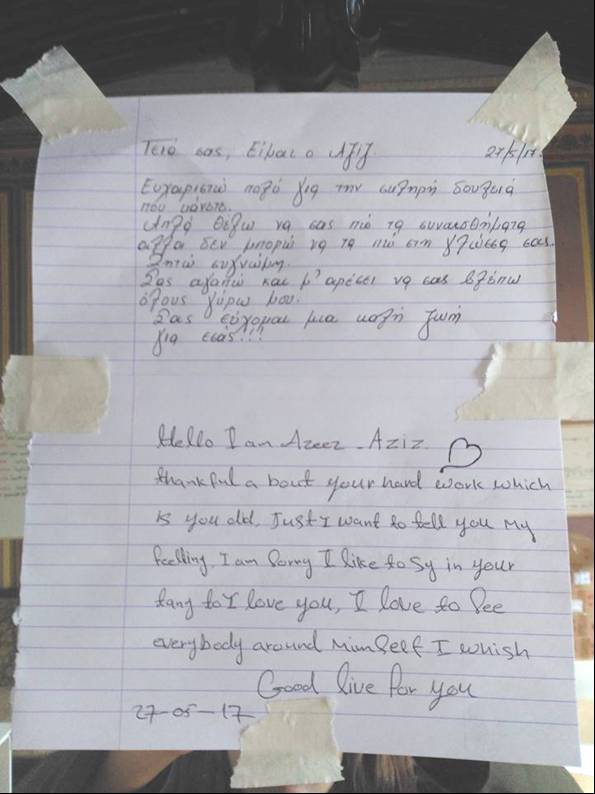 Γειά σας, Είμαι ο Αζίζ.
27/5/17.
Ευχαριστώ πολύ για την σκληρή δουλειά
που κάνατε.
Απλά θέλω να σας πιώ τα συναισθήματα
αλλά δεν μπορώ να τα πιώ στη γλώσσα σας.
Ζητώ συγνώμη.
Σας αγαπώ και μ'αρέσει να σας βλέπω
όλους γύρω μου.
Σας εύχομαι μια καλή ζωή
για εσάς!!!
Hello I am Azeez - Aziz
thankful a bout your hard work which
is you did. Just I want to tell you my
feelling. I am Sorry I like to Sy in your
tang to I love you, I love to See
everybody around Mimself I whish
Good live for you
27-05-17